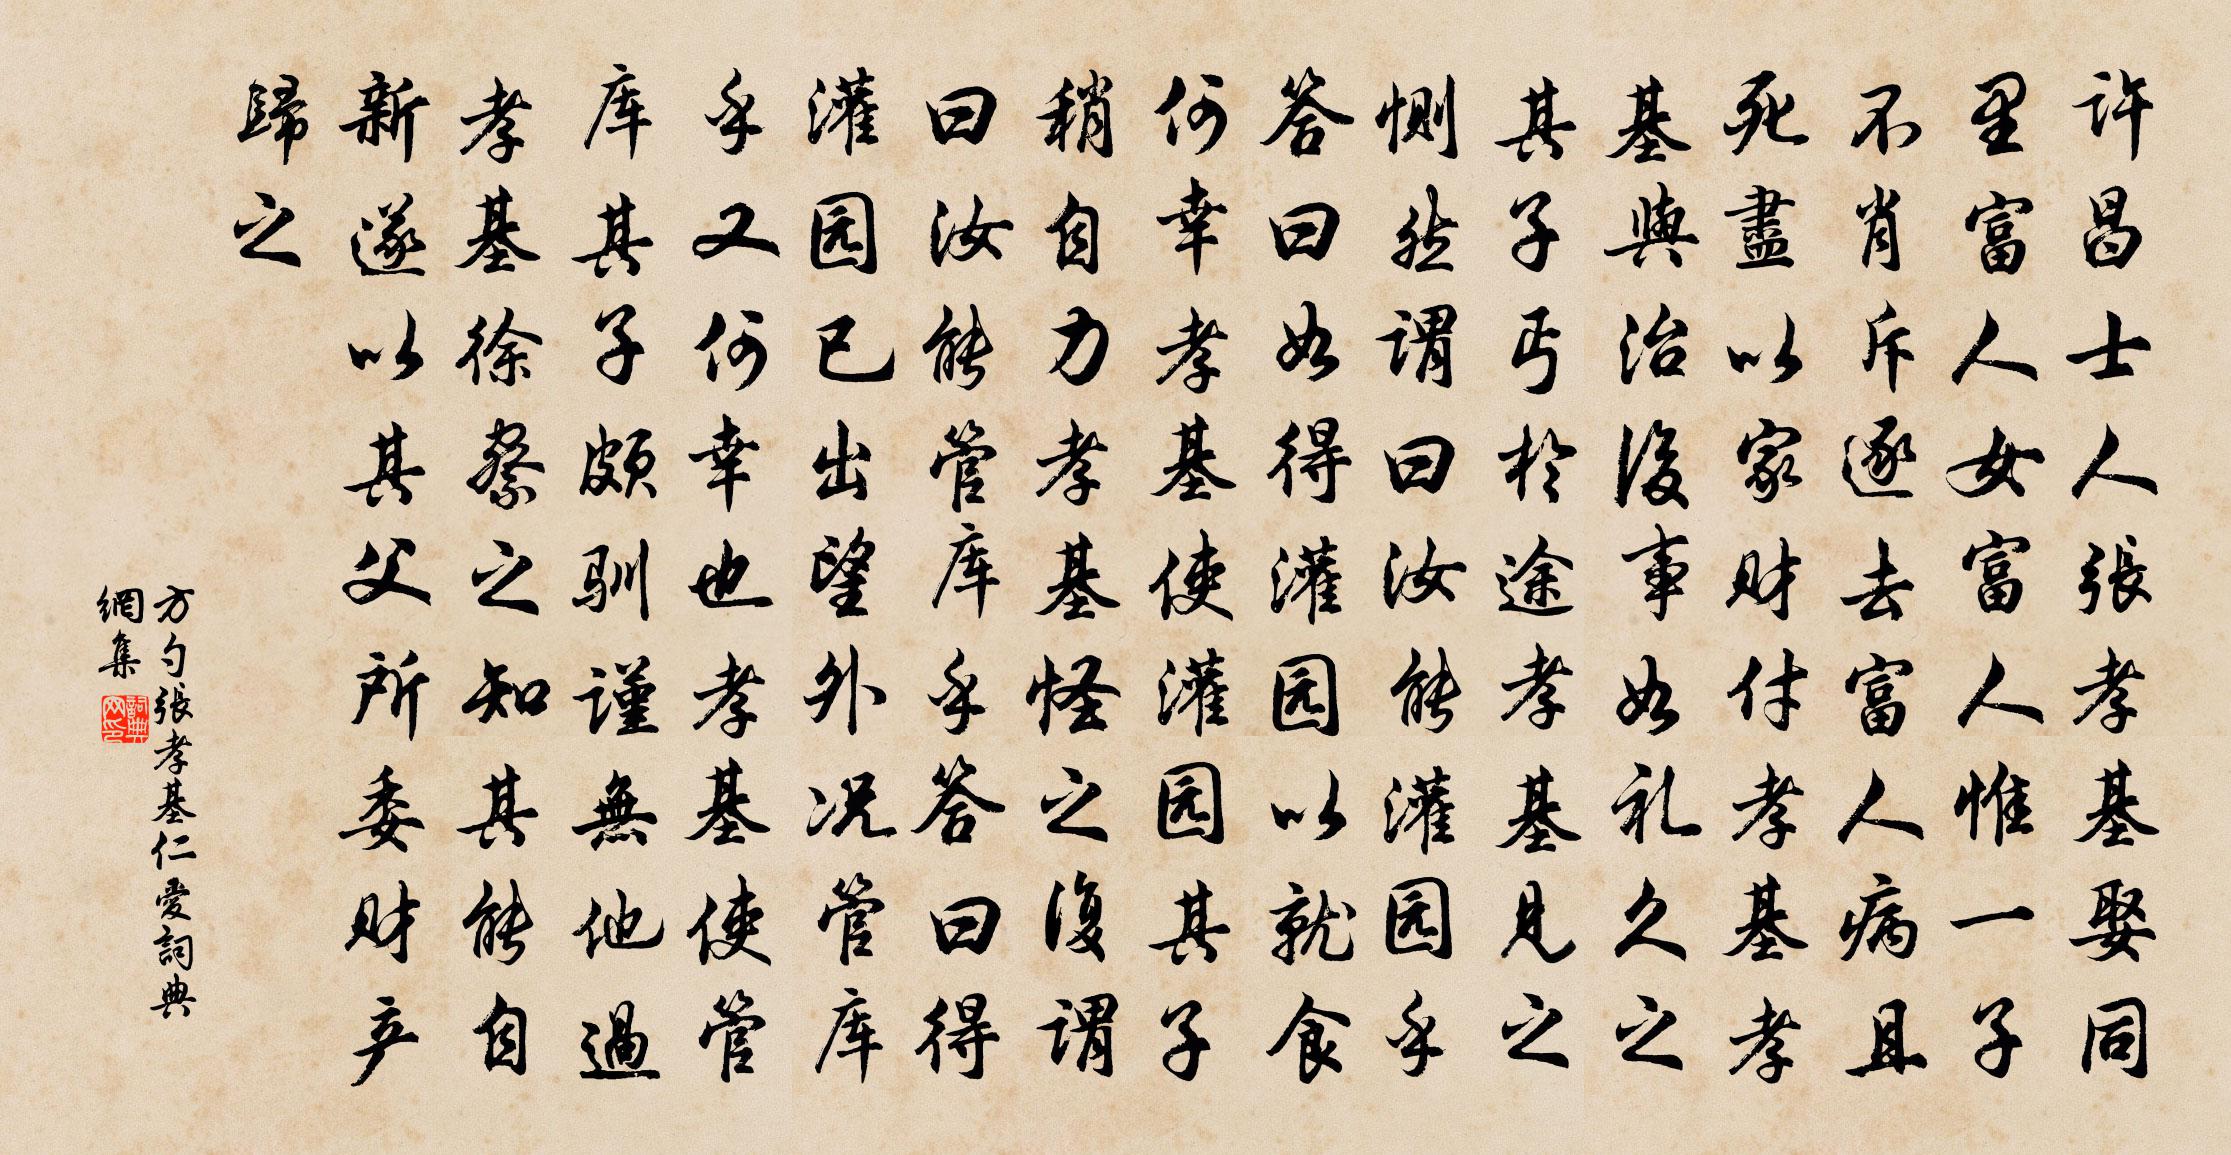 許昌士人張孝基娶同
里富人女富人惟一子
不肖斥逐去富人病且
死盡以家财付孝基孝
基與治後事如礼久之
其子丐於途孝基見之
惻然謂曰汝能灌园乎
答曰如得灌园以就食
何幸孝基使灌园其子
稍自力孝基怪之復謂
曰汝能管库乎答曰得
灌园已出望外况管库
乎又何幸也孝基使管
库其子頗馴謹無他過
孝基徐察之知其能自
新遂以其父所委财产
歸之
方勺張孝基仁愛詞典
網集
詞典网印